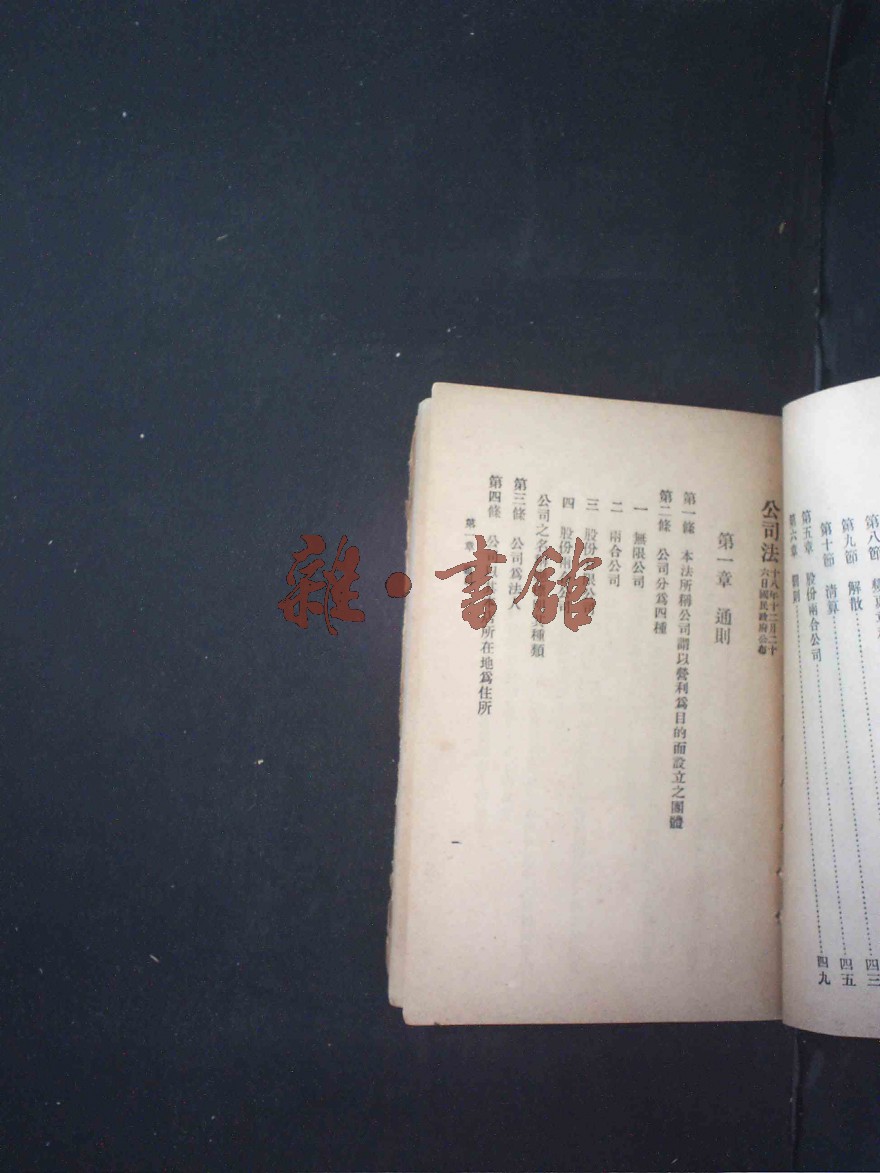 第八節
第九節 解散 四三
第十節 清算 四五
第五章 股份兩合公司 四九
第六章 罰則
公司法 十八年十二月二十
六日國民政府公布
第一章 通則
第一條 本法所稱公司謂以營利爲目的而設立之團體
第二條 公司分爲四種
一 無限公司
二 兩合公司
三 股份 限公
四 股份兩
公司之名 種類
第三條 公司爲法人
第四條 公 所在地爲住所
第一章
一
雜·書館